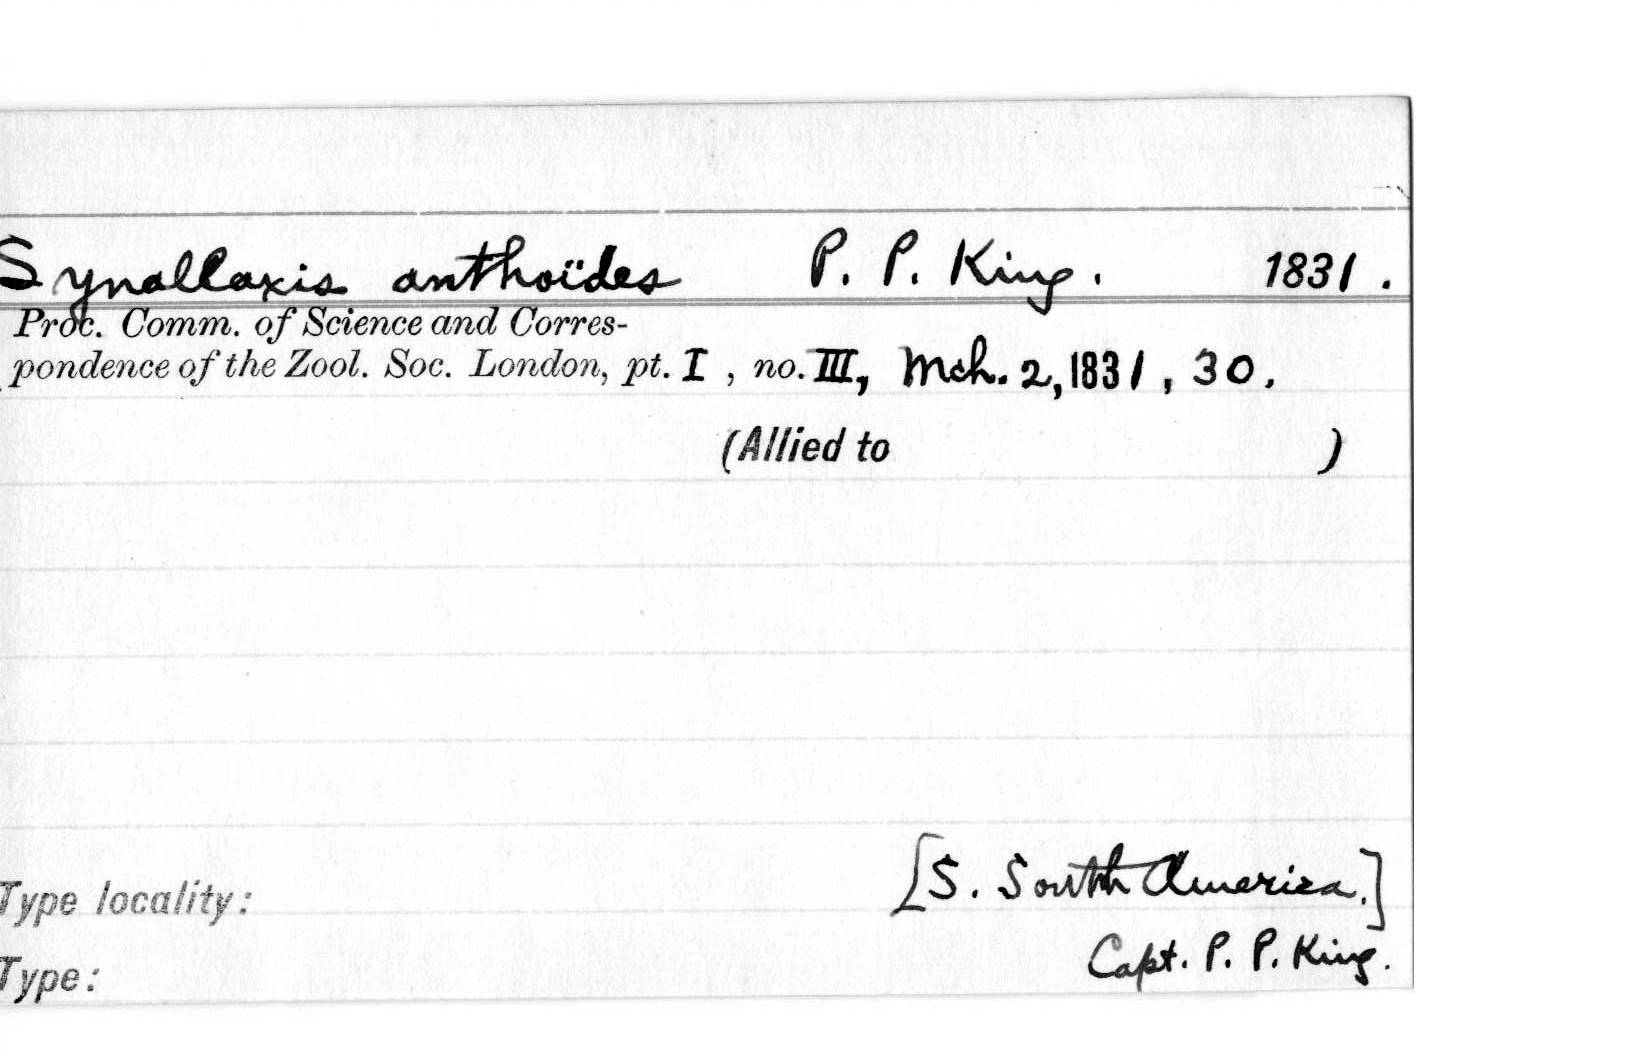 Synallaxis anthoïdes P. P. King. 1831.
Proc. Comm. of Science and Corres-
pondence of the Zool. Soc. London, pt. I , no. III, Mch. 2, 1831, 30.
(Allied to )
[S. South America.]
Type locality:
Capt. P. P. King.
Type: